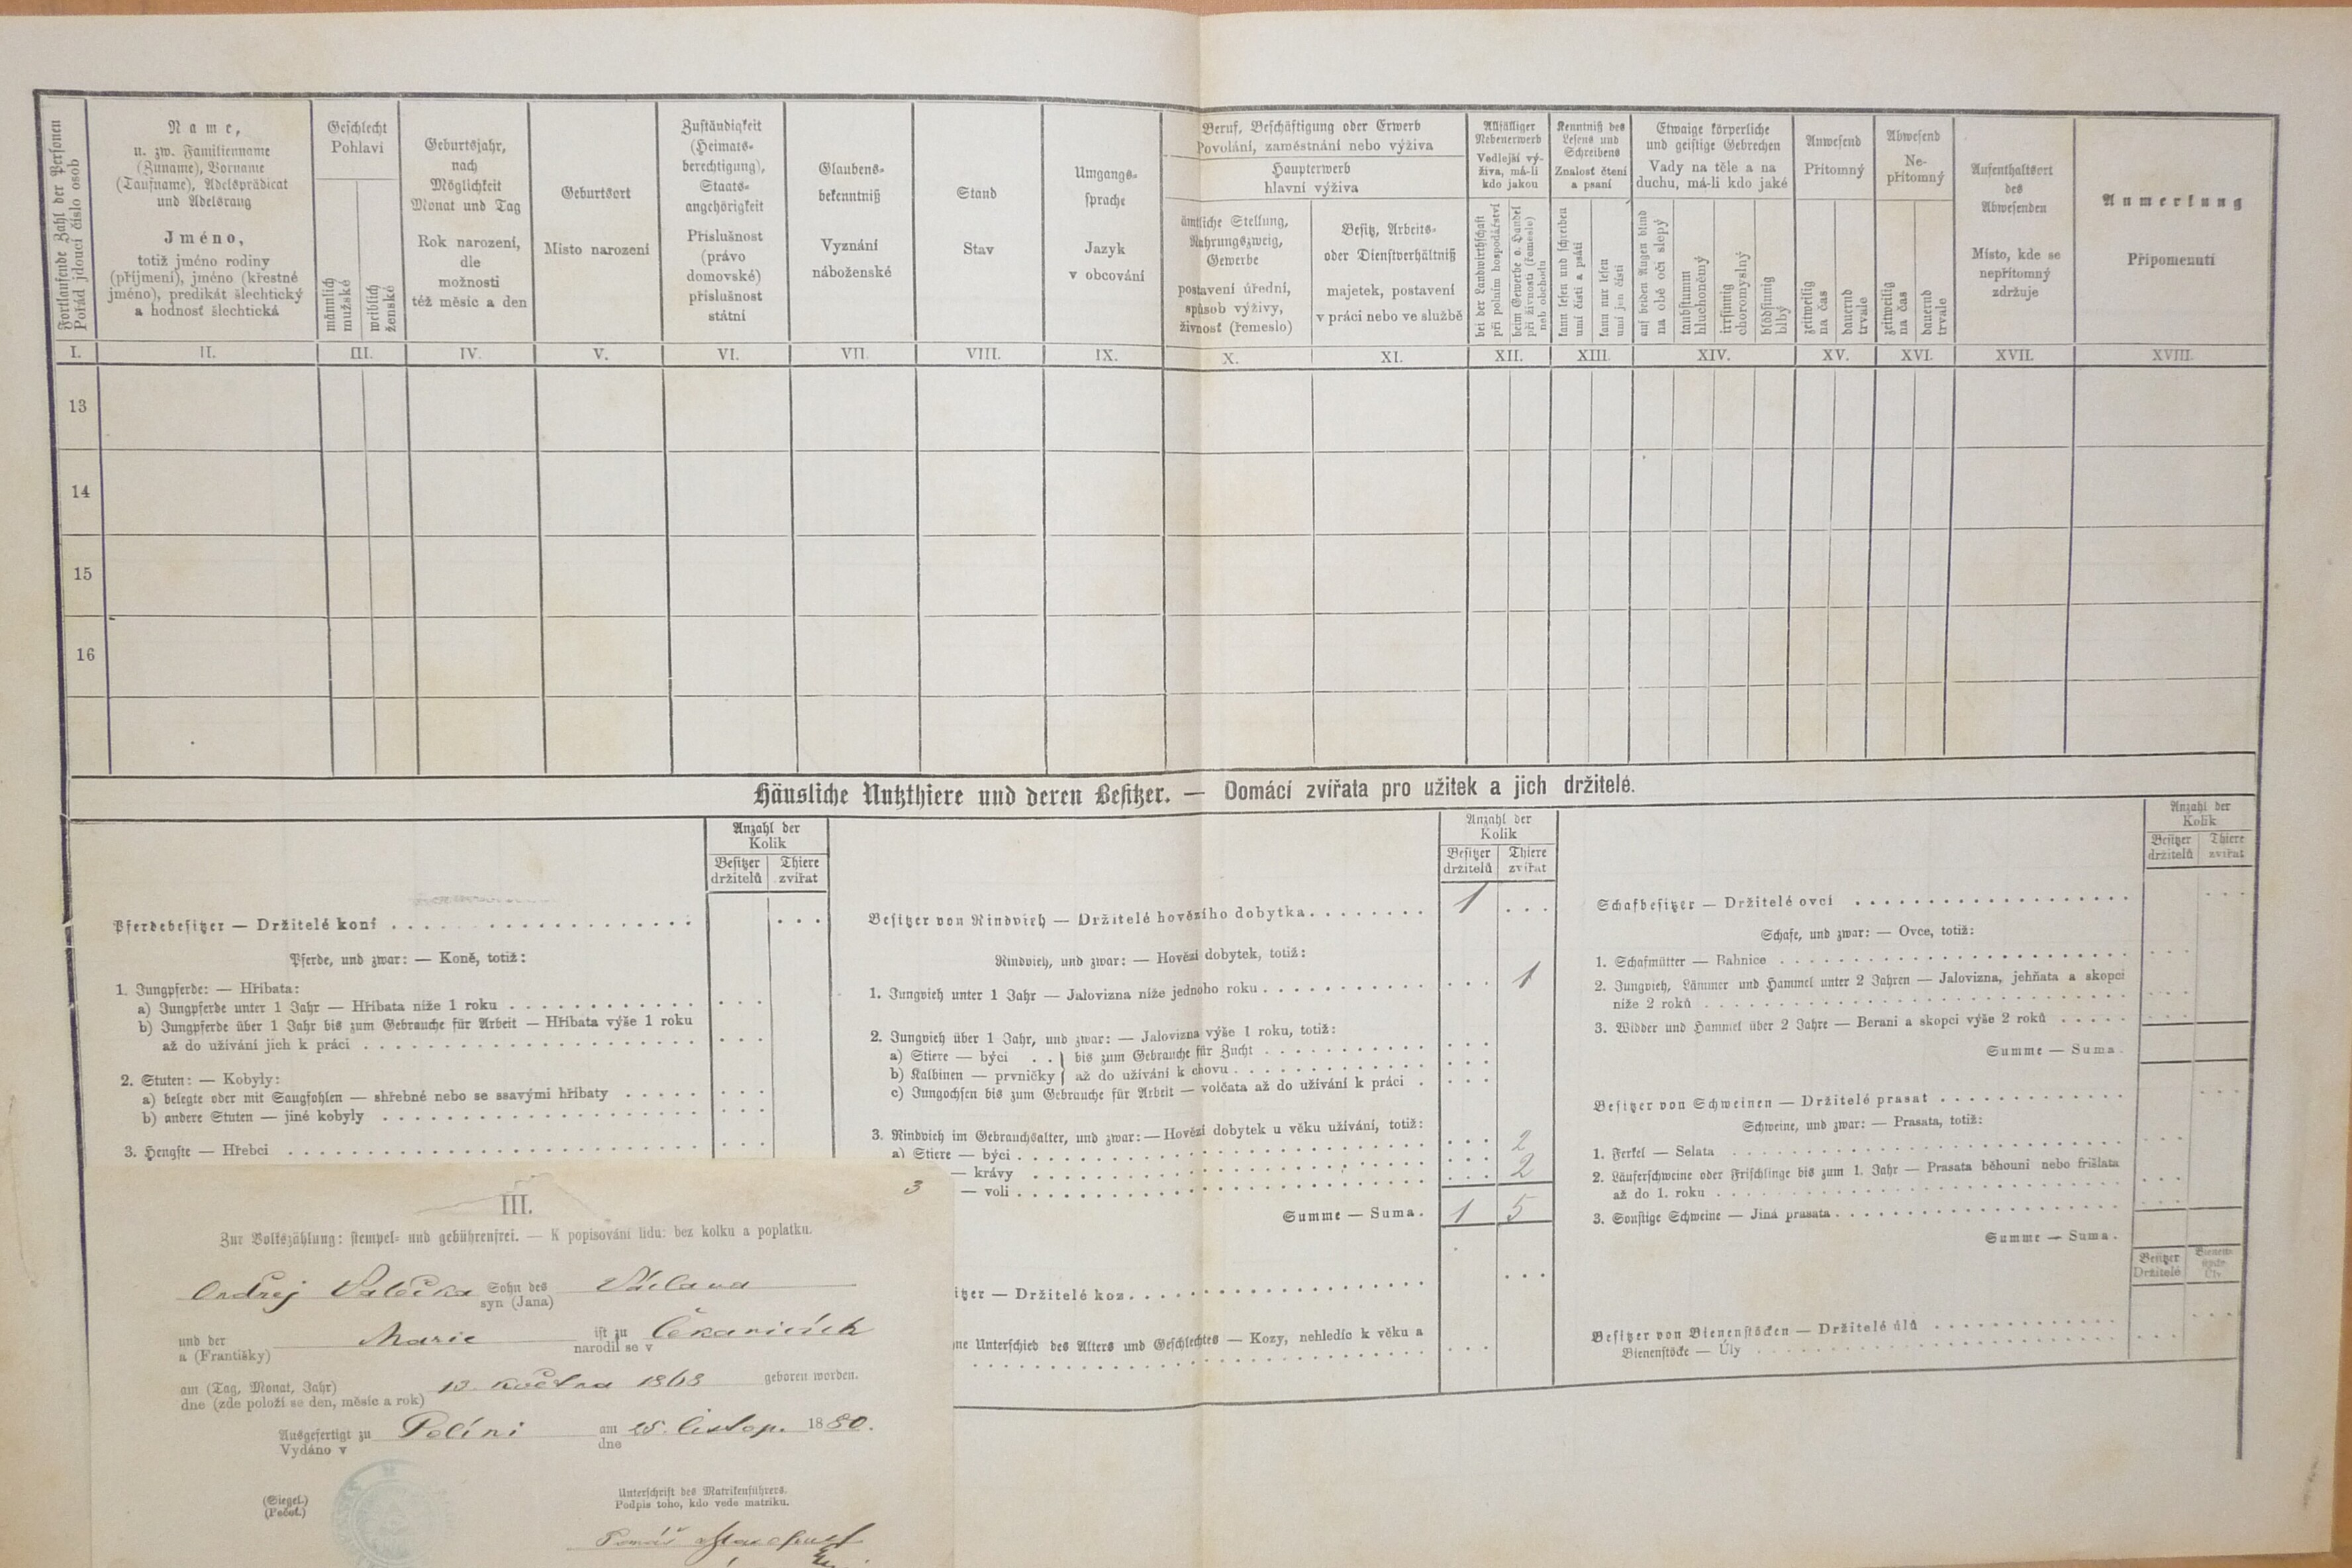 Fortlaufende Zahl der Personen
Pořád jdoucí číslo osob
Name,
u. zw. Familienname
(Zuname), Vorname
(Taufname), Adelsprädicat
und Adelsrang
Jméno,
totiž jméno rodiny
(příjmení), jméno (křestné
jméno), predikát šlechtický
a hodnosť šlechtická
Geschlecht
Pohlaví
männlich
mužské
weiblich
ženské
Geburtsjahr,
nach
Möglichkeit
Monat und Tag
Rok narození,
dle
možnosti
též měsíc a den
Geburtsort
Místo narození
Zuständigkeit
(Heimats-
berechtigung),
Staats-
angehörigkeit
Příslušnost
(právo
domovské)
příslušnost
státní
Glaubens-
bekenntniß
Vyznání
náboženské
Stand
Stav
Umgangs-
sprache
Jazyk
v obcování
Beruf, Beschäftigung oder Erwerb
Povolání, zaměstnání nebo výživa
Haupterwerb
hlavní výživa
ämtliche Stellung,
Nahrungszweig,
Gewerbe
postavení úřední,
spůsob výživy,
živnost (řemeslo)
Besitz, Arbeits-
oder Dienstverhältniß
majetek, postavení
v práci nebo ve službě
Allfälliger
Nebenerwerb
Vedlejší vý-
živa, má-li
kdo jakou
bei der Landwirthschaft
při polním hospodářství
beim Gewerbe o. Handel
při živnosti (řemesle)
neb obchodu
Kenntniß des
Lesens und
Schreibens
Znalosť čtení
a psaní
kann lesen und schreiben
umí čísti a psáti
kann nur lesen
umí jen čísti
Etwaige körperliche
und geistige Gebrechen
Vady na těle a na
duchu, má-li kdo jaké
auf beiden Augen blind
na obě oči slepý
taubstumm
hluchoněmý
irrsinnig
choromyslný
blödsinnig
blbý
Anwesend
Přítomný
zeitweilig
na čas
dauernd
trvale
Abwesend
Ne-
přítomný
zeitweilig
na čas
dauernd
trvale
Aufenthaltsort
des
Abwesenden
Místo, kde se
nepřítomný
zdržuje
Anmerkung
Připomenutí
I. II. III. IV. V. VI. VII. VIII. IX. X. XI. XII. XIII. XIV. XV. XVI. XVII. XVIII.
13
14
15
16
Häusliche Nutzthiere und deren Besitzer. — Domácí zvířata pro užitek a jich držitelé.
Anzahl der
Kolik
Besitzer
držitelů
Thiere
zvířat
Pferdebesitzer — Držitelé koní
Pferde, und zwar: — Koně, totiž:
1. Jungpferde: — Hříbata:
a) Jungpferde unter 1 Jahr — Hříbata níže 1 roku
b) Jungpferde über 1 Jahr bis zum Gebrauche für Arbeit — Hříbata výše 1 roku
až do užívání jich k práci
2. Stuten: — Kobyly:
a) belegte oder mit Saugfohlen — shřebné nebo se ssavými hříbaty
b) andere Stuten — jiné kobyly
3. Hengste — Hřebci
Anzahl der
Kolik
Besitzer
držitelů
Thiere
zvířat
Besitzer von Rindvieh — Držitelé hovězího dobytka 1
Rindvieh, und zwar: — Hovězí dobytek, totiž:
1. Jungvieh unter 1 Jahr — Jalovizna níže jednoho roku 1
2. Jungvieh über 1 Jahr, und zwar: — Jalovizna výše 1 roku, totiž:
a) Stiere — býci } bis zum Gebrauche für Zucht
b) Kalbinen — prvničky } až do užívání k chovu
c) Jungochsen bis zum Gebrauche für Arbeit — volčata až do užívání k práci
3. Rindvieh im Gebrauchsalter, und zwar: — Hovězí dobytek u věku užívání, totiž:
a) Stiere — býci
— krávy 2
— voli 2
Summe — Suma. 1 5
itzer — Držitelé koz
ne Unterschied des Alters und Geschlechtes — Kozy, nehledíc k věku a
Anzahl der
Kolik
Besitzer
držitelů
Thiere
zvířat
Schafbesitzer — Držitelé ovcí
Schafe, und zwar: — Ovce, totiž:
1. Schafmütter — Bahnice
2. Jungvieh, Lämmer und Hammel unter 2 Jahren — Jalovizna, jehňata a skopci
níže 2 roků
3. Widder und Hammel über 2 Jahre — Berani a skopci výše 2 roků
Summe — Suma.
Besitzer von Schweinen — Držitelé prasat
Schweine, und zwar: — Prasata, totiž:
1. Ferkel — Selata
2. Läuferschweine oder Frischlinge bis zum 1. Jahr — Prasata běhouni nebo frišlata
až do 1. roku
3. Sonstige Schweine — Jiná prasata
Summe — Suma.
Besitzer
Držitelé
Bienen-
stöcke
Úly
Besitzer von Bienenstöcken — Držitelé úlů
Bienenstöcke — Úly
3
III.
Zur Volkszählung: stempel- und gebührenfrei. — K popisování lidu: bez kolku a poplatku.
Ondřej Valečka Sohn des Václava
syn (Jana)
und der Marie ist zu Čekanicích
a (Františky) narodil se v
am (Tag, Monat, Jahr) 13. května 1868 geboren worden.
dne (zde položí se den, měsíc a rok)
Ausgefertigt zu Políni am 25. listop. 1880.
Vydáno v dne
(Siegel.)
(Pečeť.)
Unterschrift des Matrikenführers.
Podpis toho, kdo vede matriku.
Tomáš